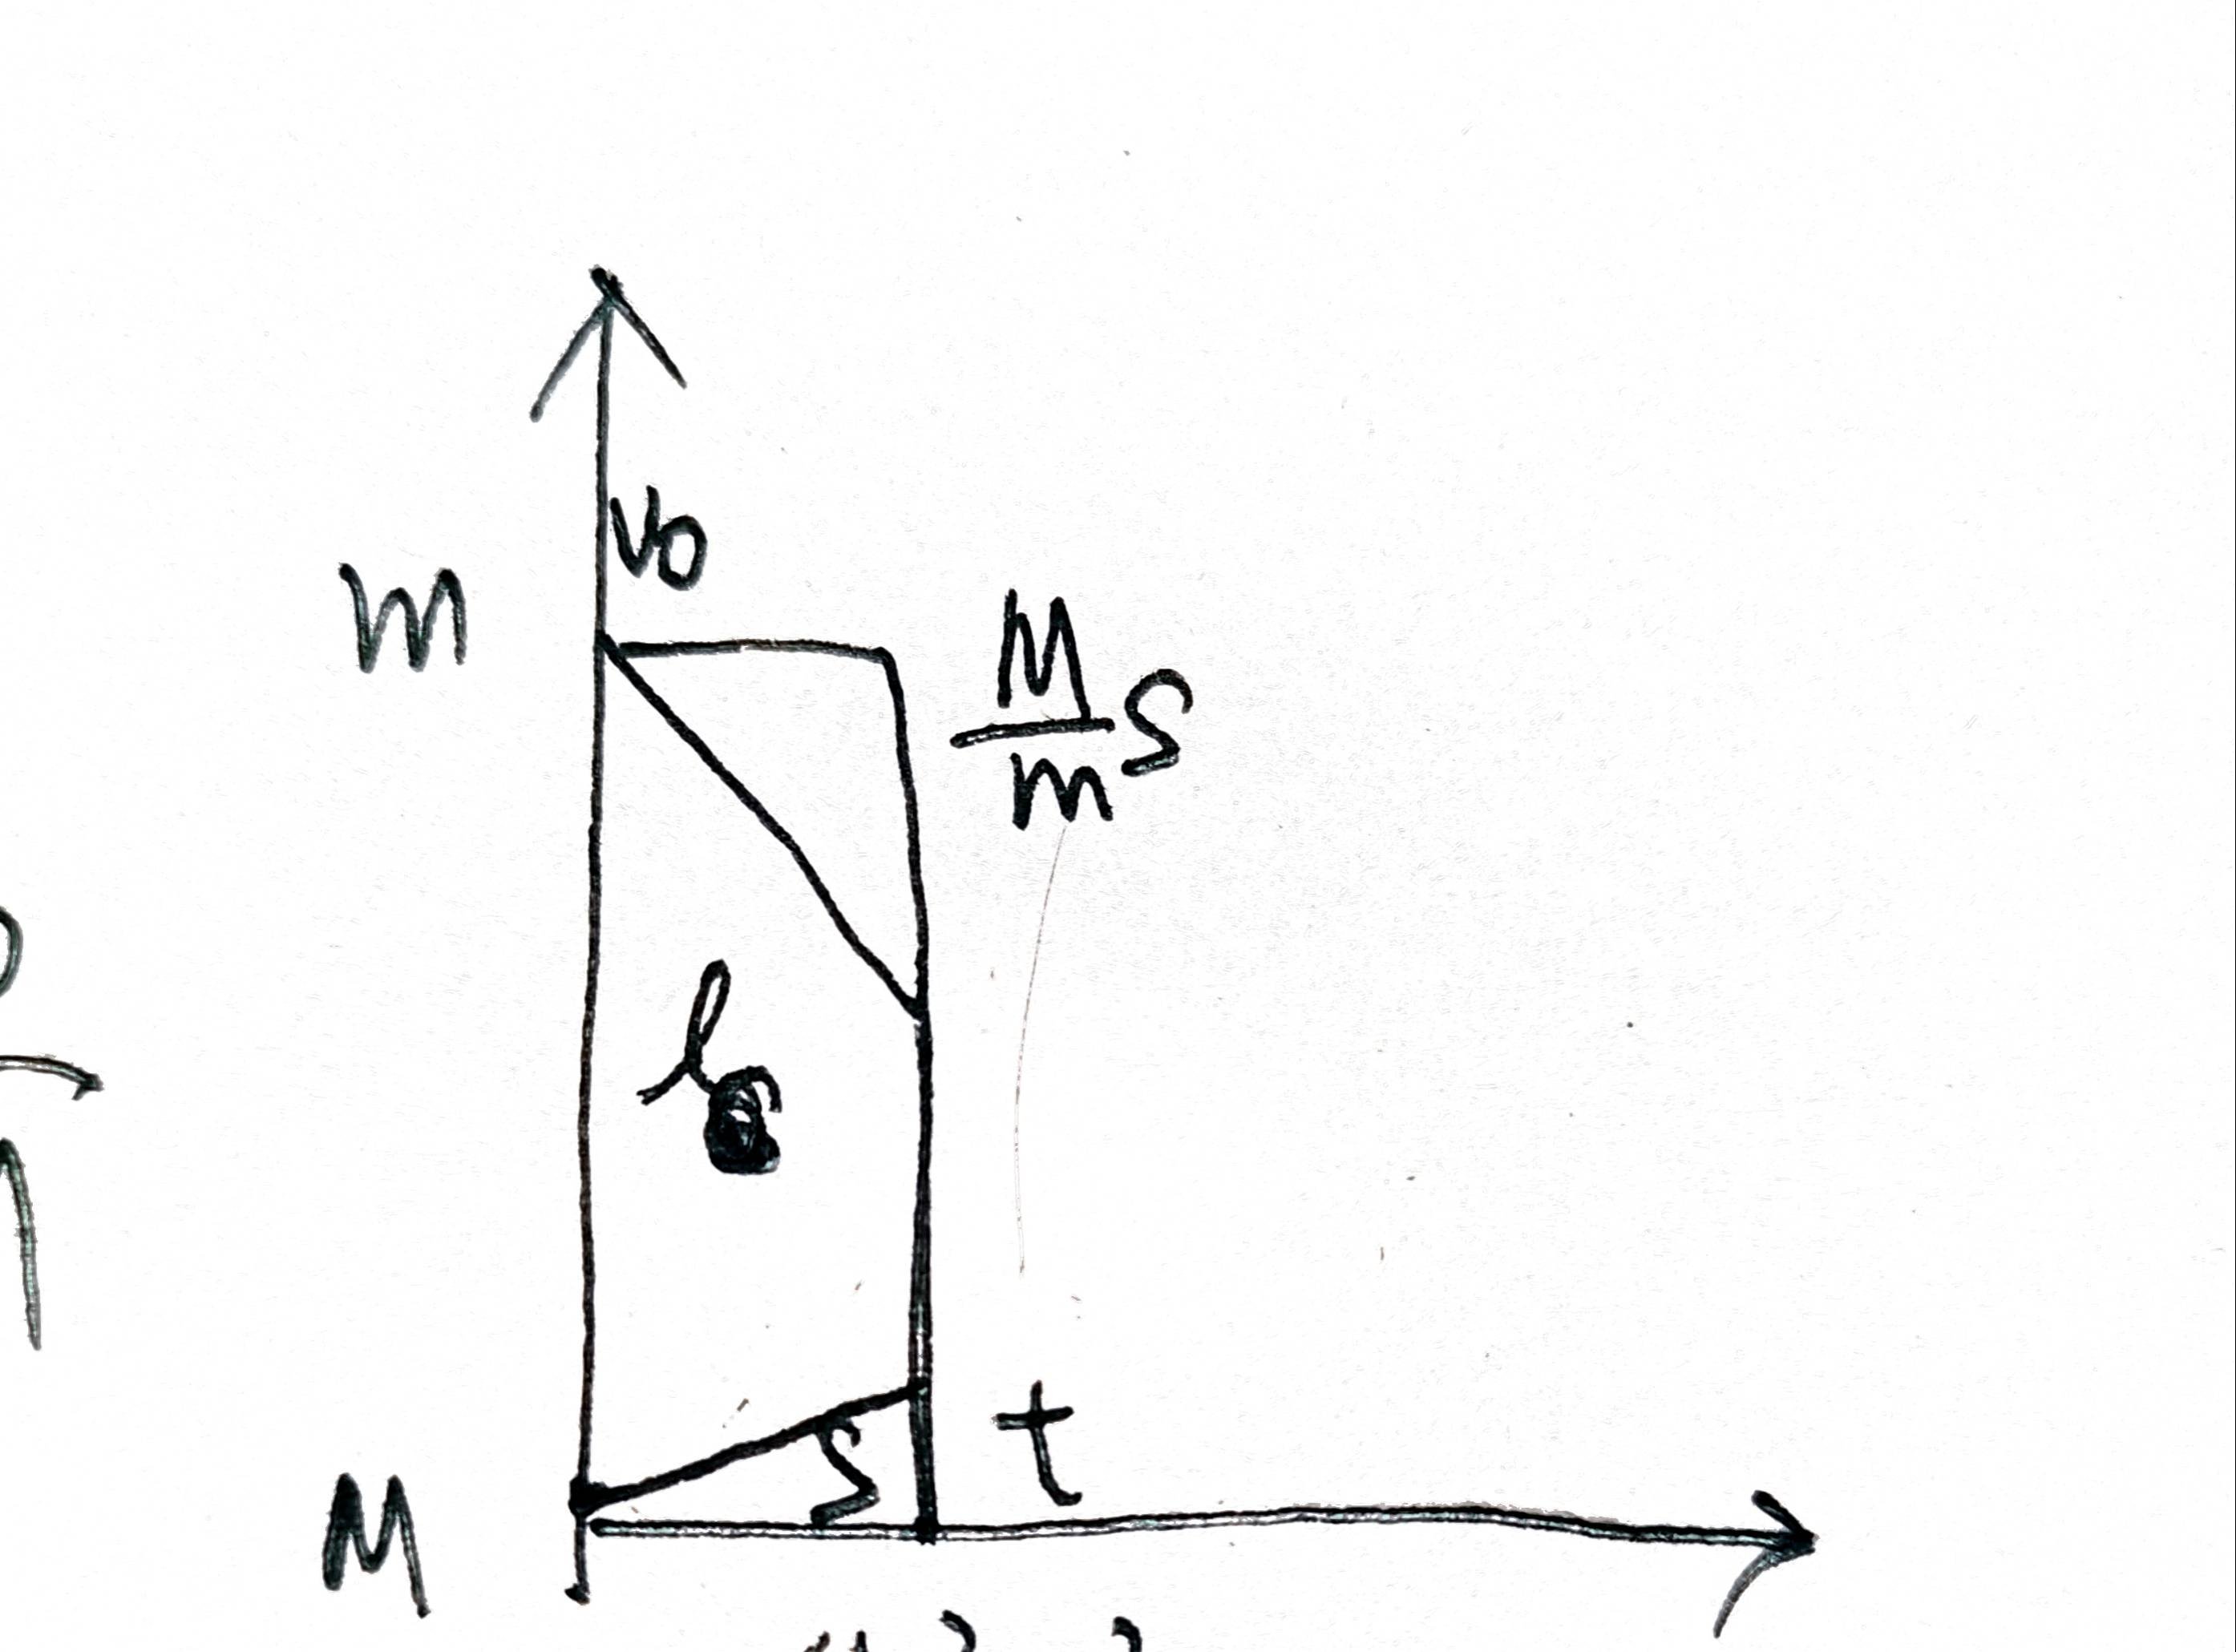 v0
m
M/m s
l
s
t
M